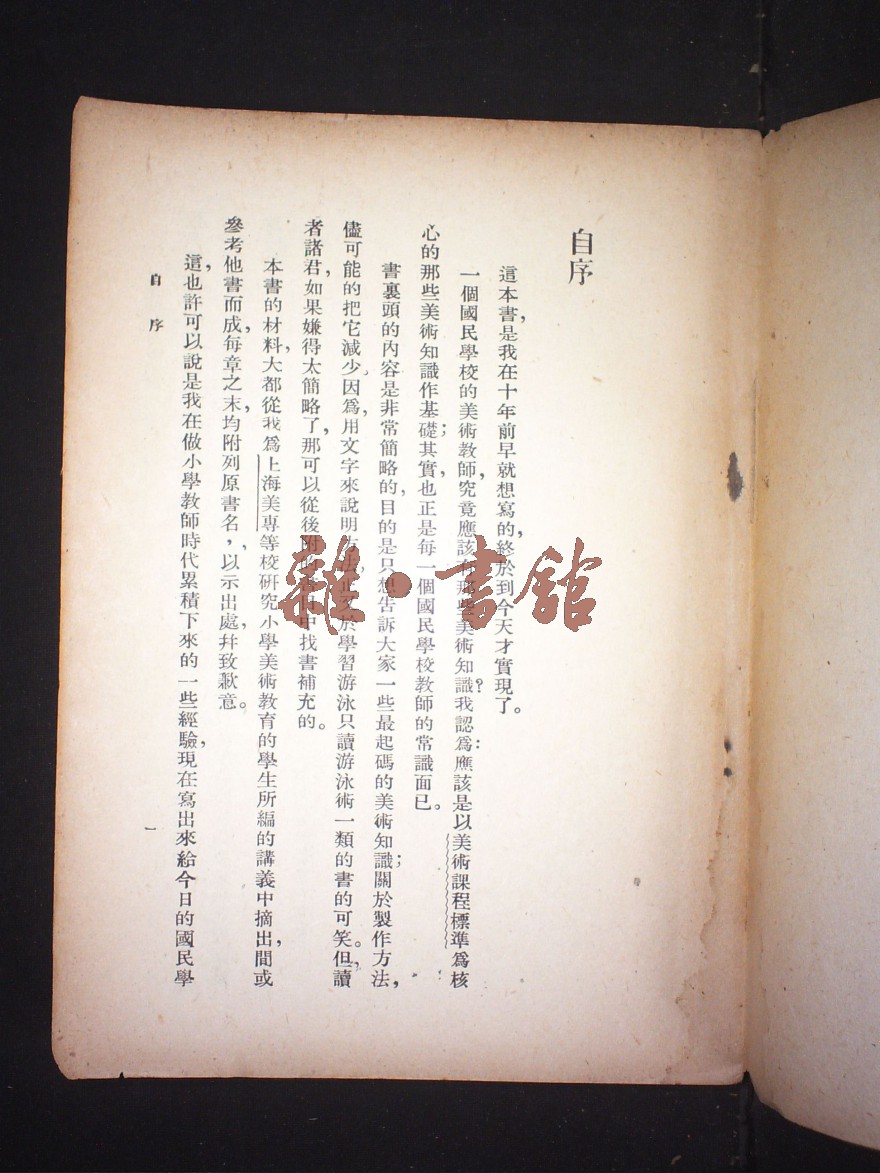 自序
這本書，是我在十年前早就想寫的，終於到今天才實現了。
一個國民學校的美術教師，究竟應該有那些美術知識？我認爲：應該是以美術課程標準爲核
心的那些美術知識作基礎；其實，也正是每一個國民學校教師的常識而已。
書裏頭的內容是非常簡略的，目的是只想告訴大家一些最起碼的美術知識；關於製作方法，
儘可能的把它減少。因爲，用文字來說明方法，正如於學習游泳只讀游泳術一類的書的可笑。但，讀
者諸君，如果嫌得太簡略了，那可以從後附的書目中找書補充的。
本書的材料，大都從我爲上海美專等校研究小學美術教育的學生所編的講義中摘出，間或
參考他書而成，每章之末，均附列原書名，以示出處，幷致歉意。
這，也許可以說是我在做小學教師時代累積下來的一些經驗，現在寫出來給今日的國民學
自序
一
雜·書舘